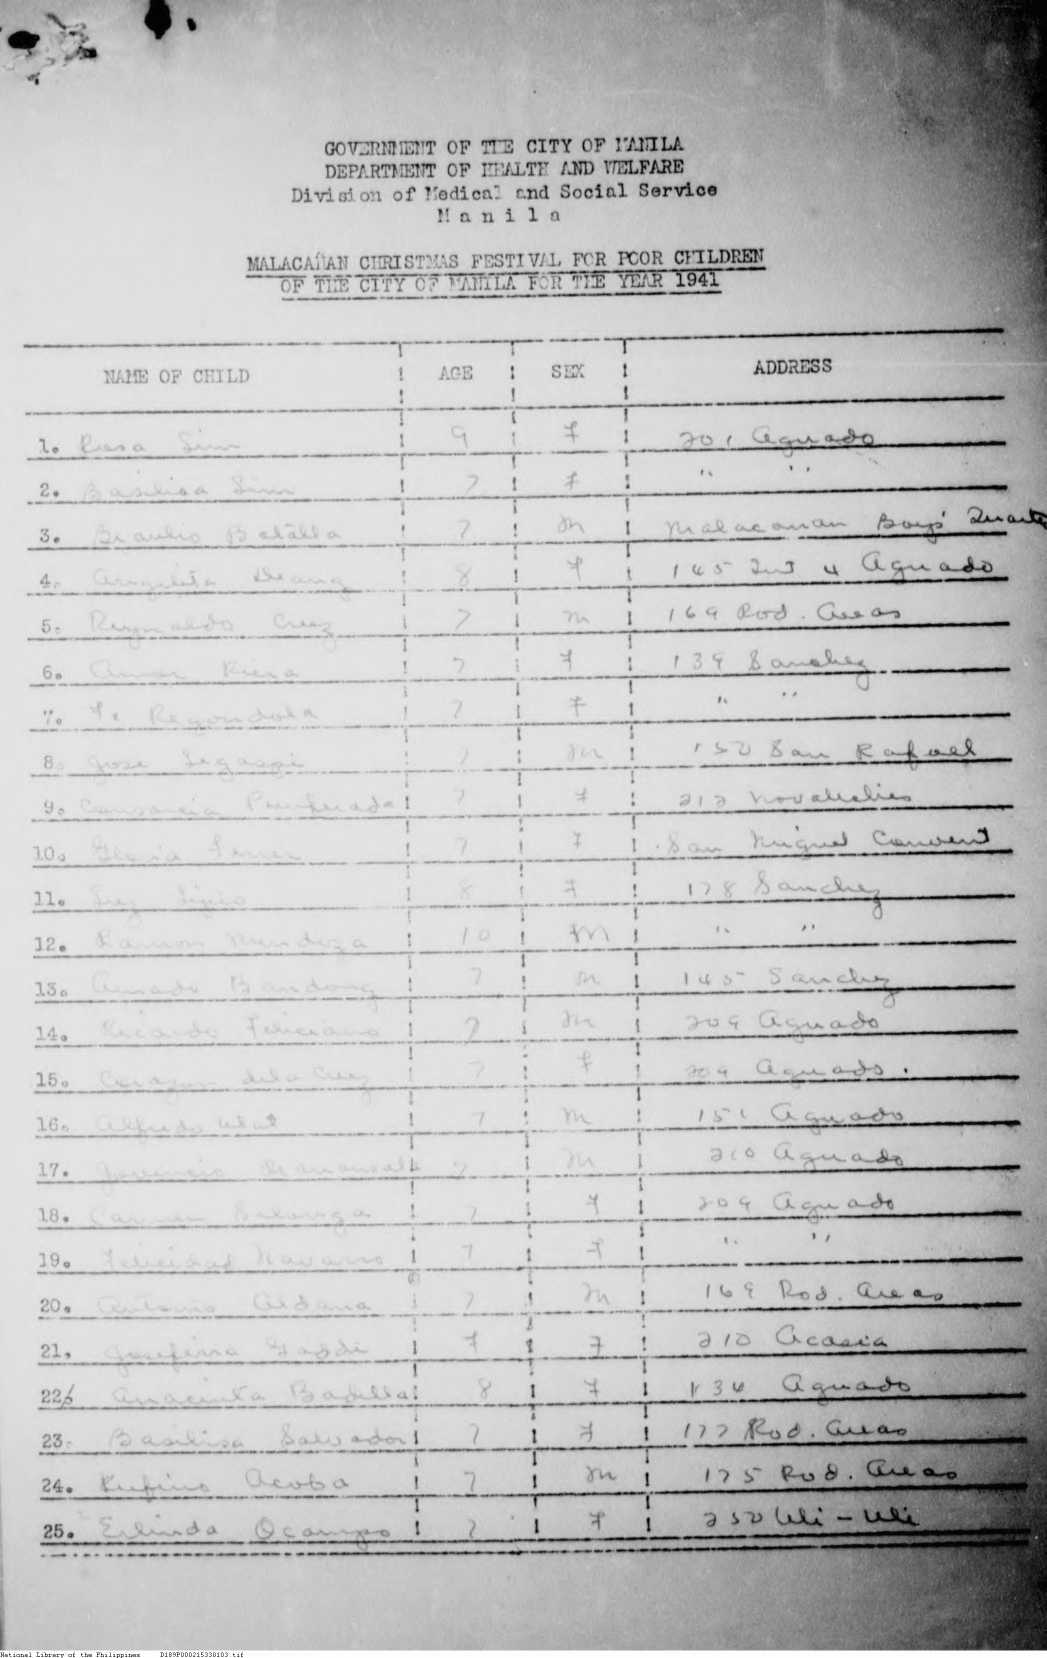 GOVERNMENT OF THE CITY OF MANILA
DEPARTMENT OF HEALTH AND WELFARE
Division of Medical and Social Service
M a n i l a
MALACAÑAN CHRISTMAS FESTIVAL FOR POOR CHILDREN
OF THE CITY OF MANILA FOR THE YEAR 1941
NAME OF CHILD AGE SEX ADDRESS
1. Rosa Sim 9 F 201 Aguado
2. Basilisa Sim 7 F " "
3. Braulio Batalla 7 M Malacanan Boys'
4. 8 F 145 Int 4 Aguado
5. Reynaldo Cruz 7 M 169 Rod. Areas
6. 7 F 139 Sanchez
7. Fe Regondola 7 F " "
8. Jose Legaspi 7 M 150 San Rafael
9. 7 F 212 Novaliches
10. Gloria 7 F San Miguel Convent
11. 8 F 178 Sanchez
12. Ramon Mendoza 10 M " "
13. Amado Bandong 7 M 145 Sanchez
14. Ricardo Feliciano 7 M 209 Aguado
15. Corazon dela Cruz 7 F 209 Aguado.
16. Alfredo 7 M 151 Aguado
17. 7 M 210 Aguado
18. Carmen 7 F 209 Aguado
19. Felicidad Navarro 7 F " "
20. Antonio Aldana 7 M 169 Rod. Areas
21. Josefina 7 F 210 Acasia
22. Anacinta Badilla 8 F 134 Aguado
23. Basilisa Salvador 7 F 177 Rod. Areas
24. Rufino Acoba 7 M 175 Rod. Areas
25. Erlinda Ocampo 7 F 250 Uli-Uli
National Library of the Philippines D189P000215330103.tif